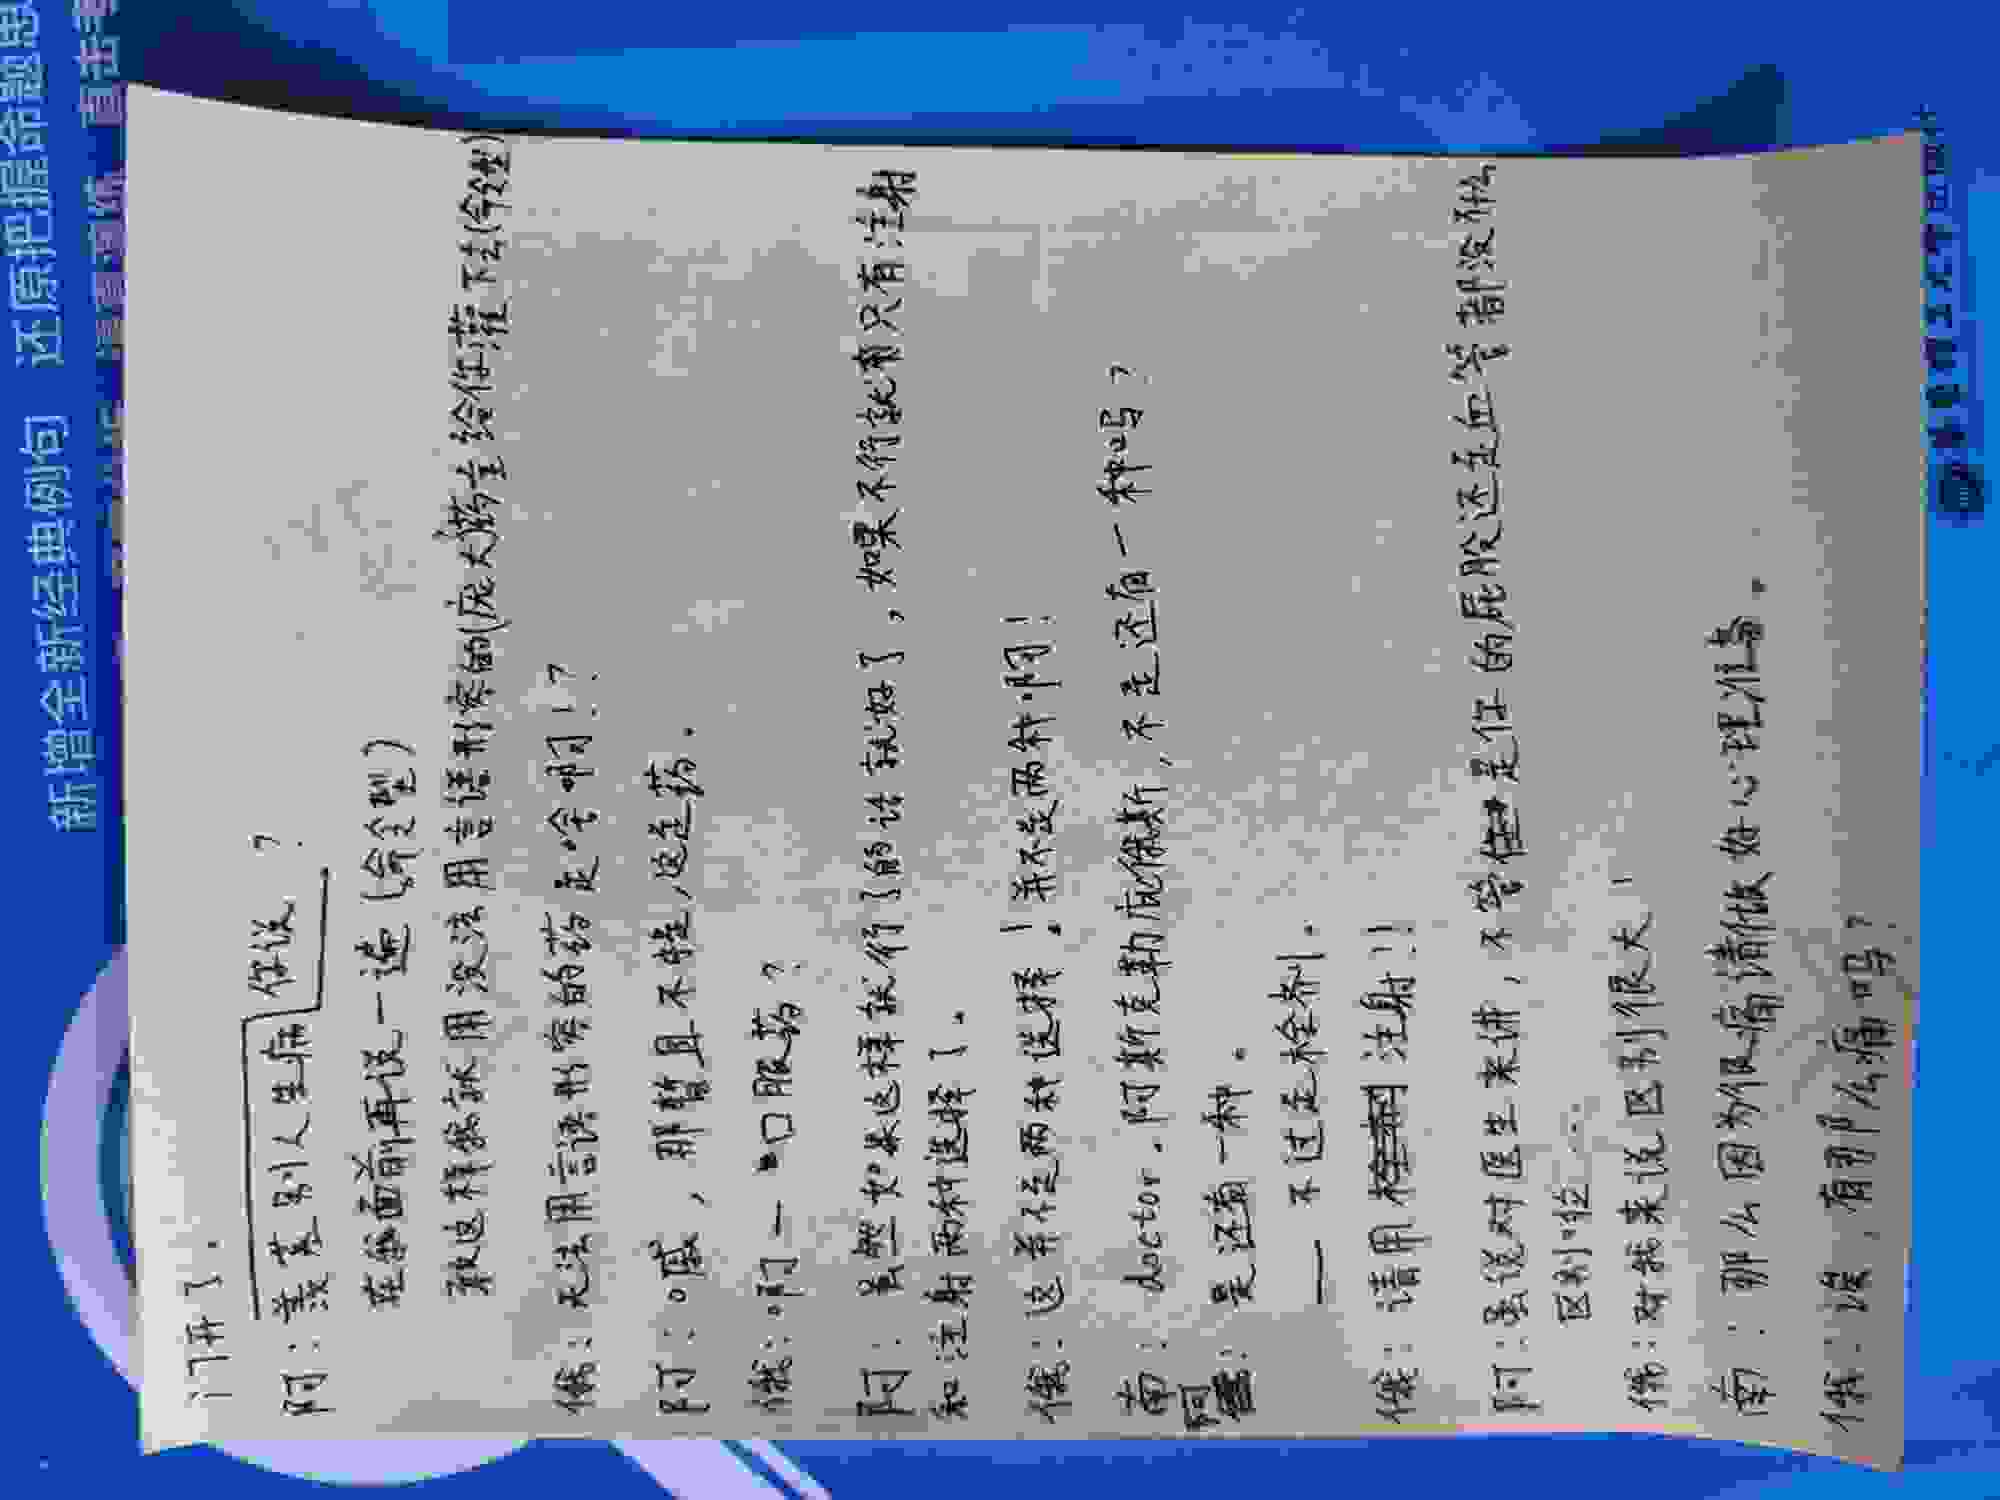 新增全新经典例句 还原把握命题思
直击
门开了。
阿：羡慕别人生病 你说？
在俄面前再说一遍（命令型）
敢这样俄就用没法用言语形容的(庞大药量给你灌下去(命令型)
俄：无法用言语形容的药是啥啊！？
阿：嘁，那暂且不提，这是药。
俄：啊— 口服药？
阿：虽然如果这样就行了的话就好了，如果不行就有只有注射
和注射两种选择了。
俄：这并不是两种选择！并不是两种啊！
南：doctor.阿斯克勒庇俄斯，不是还有一种吗？
阿：是还有一种。
—— 不过是栓剂。
俄：请用注射！！
阿：虽说对医生来讲，不管是你的屁股还是血管都没什么
区别啦……
俄：对我来说区别很大！
南：那么因为很痛请做好心理准备。
俄：诶，有那么痛吗？